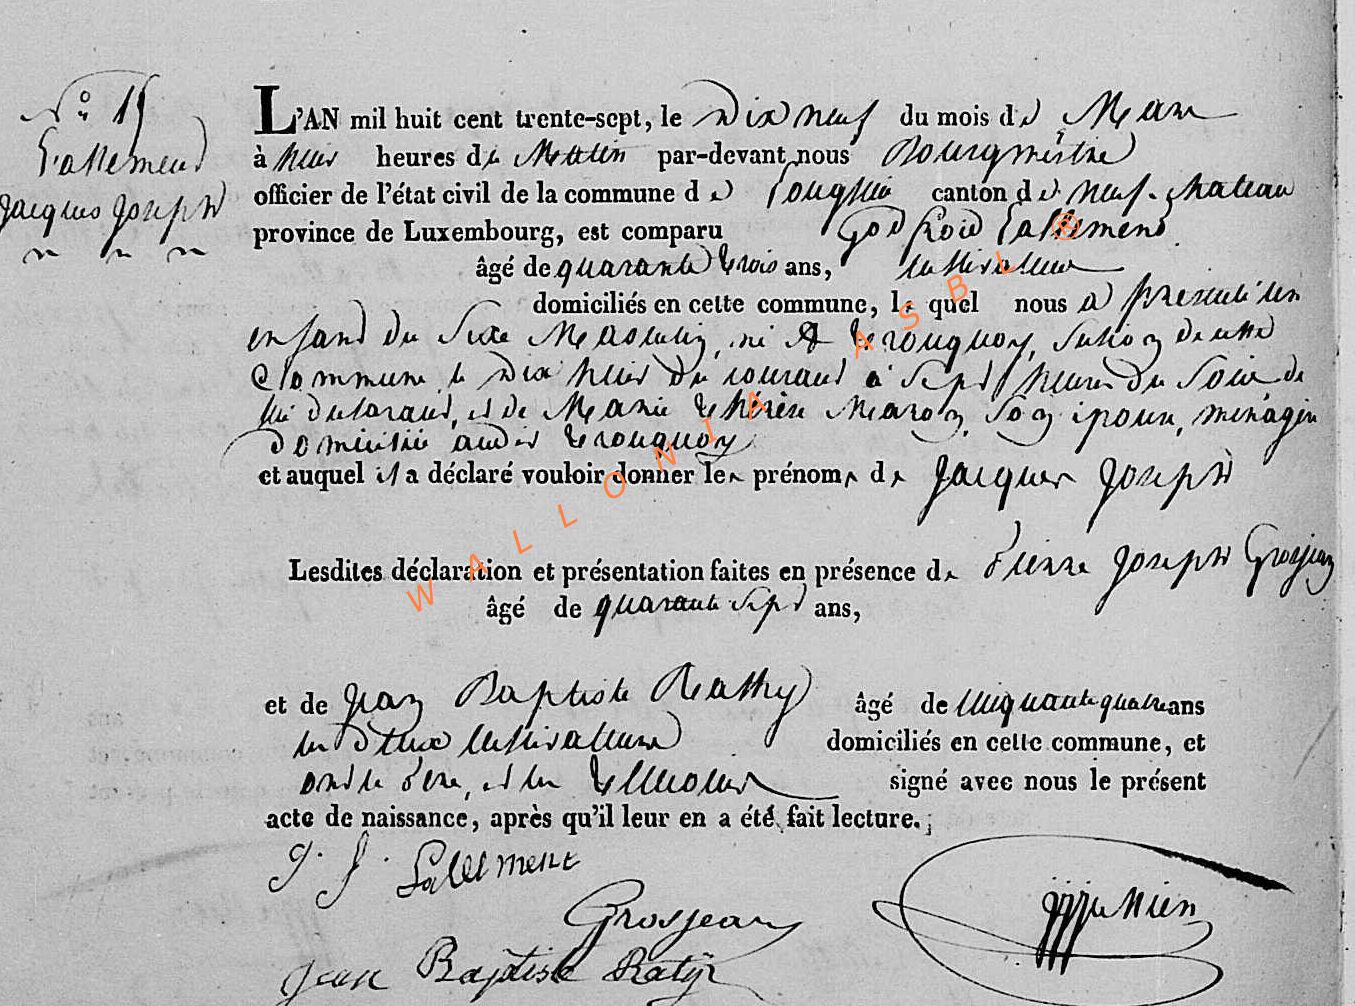 N° 15
Lallemend
Jacques Joseph
L'AN mil huit cent trente-sept, le Dix neuf du mois de Mars
à huis heures de Mattin par-devant nous Bourgmestre
officier de l'état civil de la commune de Longlier canton de neuf-chateau
province de Luxembourg, est comparu Godfroid Lallemend
âgé de quarante trois ans, cultivateur
domiciliés en cette commune, le quel nous a presenté un
enfand du Sexe Masculin, né A tronquoy, Section de cette
Commune le dix huis du courant à Sept heures du Soir de
lui déclarant, et de Marie thérèse Maron, Son epouse, ménagère
domiciliée audit tronquoy
et auquel il a déclaré vouloir donner les prénoms de Jacques Joseph
Lesdites déclaration et présentation faites en présence de Pierre Joseph Grosjean
âgé de quarante Sept ans,
et de Jean Baptiste Rathy âgé de cinquante quatre ans
les deux cultivateurs domiciliés en cette commune, et
ont le Père, et les témoins signé avec nous le présent
acte de naissance, après qu'il leur en a été fait lecture.
g. J. Lallement
Grosjean
Jean Baptiste Ratÿ
WALLONIA ASBL ®